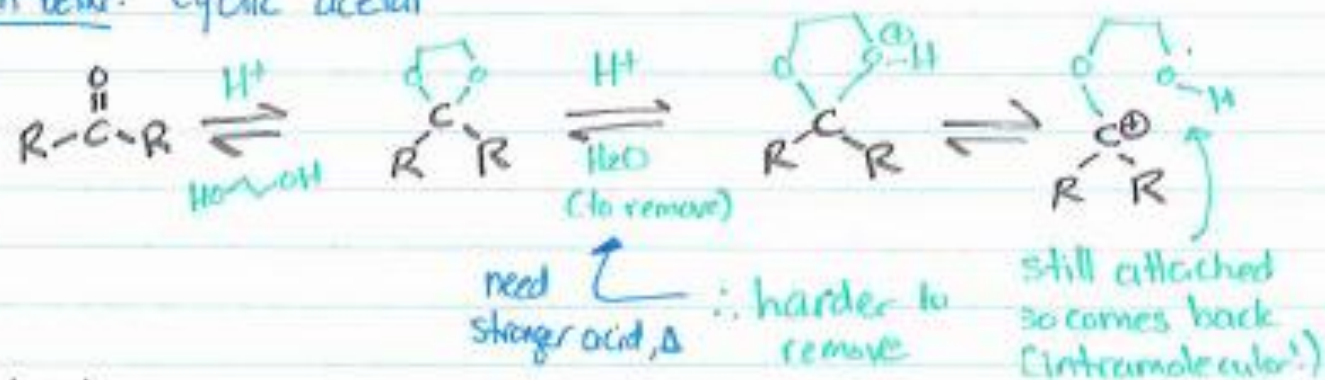 cyclic acetal
O
R-C-R
H+
HO OH
O O
C
R R
H+
H2O
(to remove)
O O-H
⊕
C
R R
O O-H
C⊕
R R
need
stronger acid, Δ
∴ harder to
remove
still attached
so comes back
(intramolecular!)